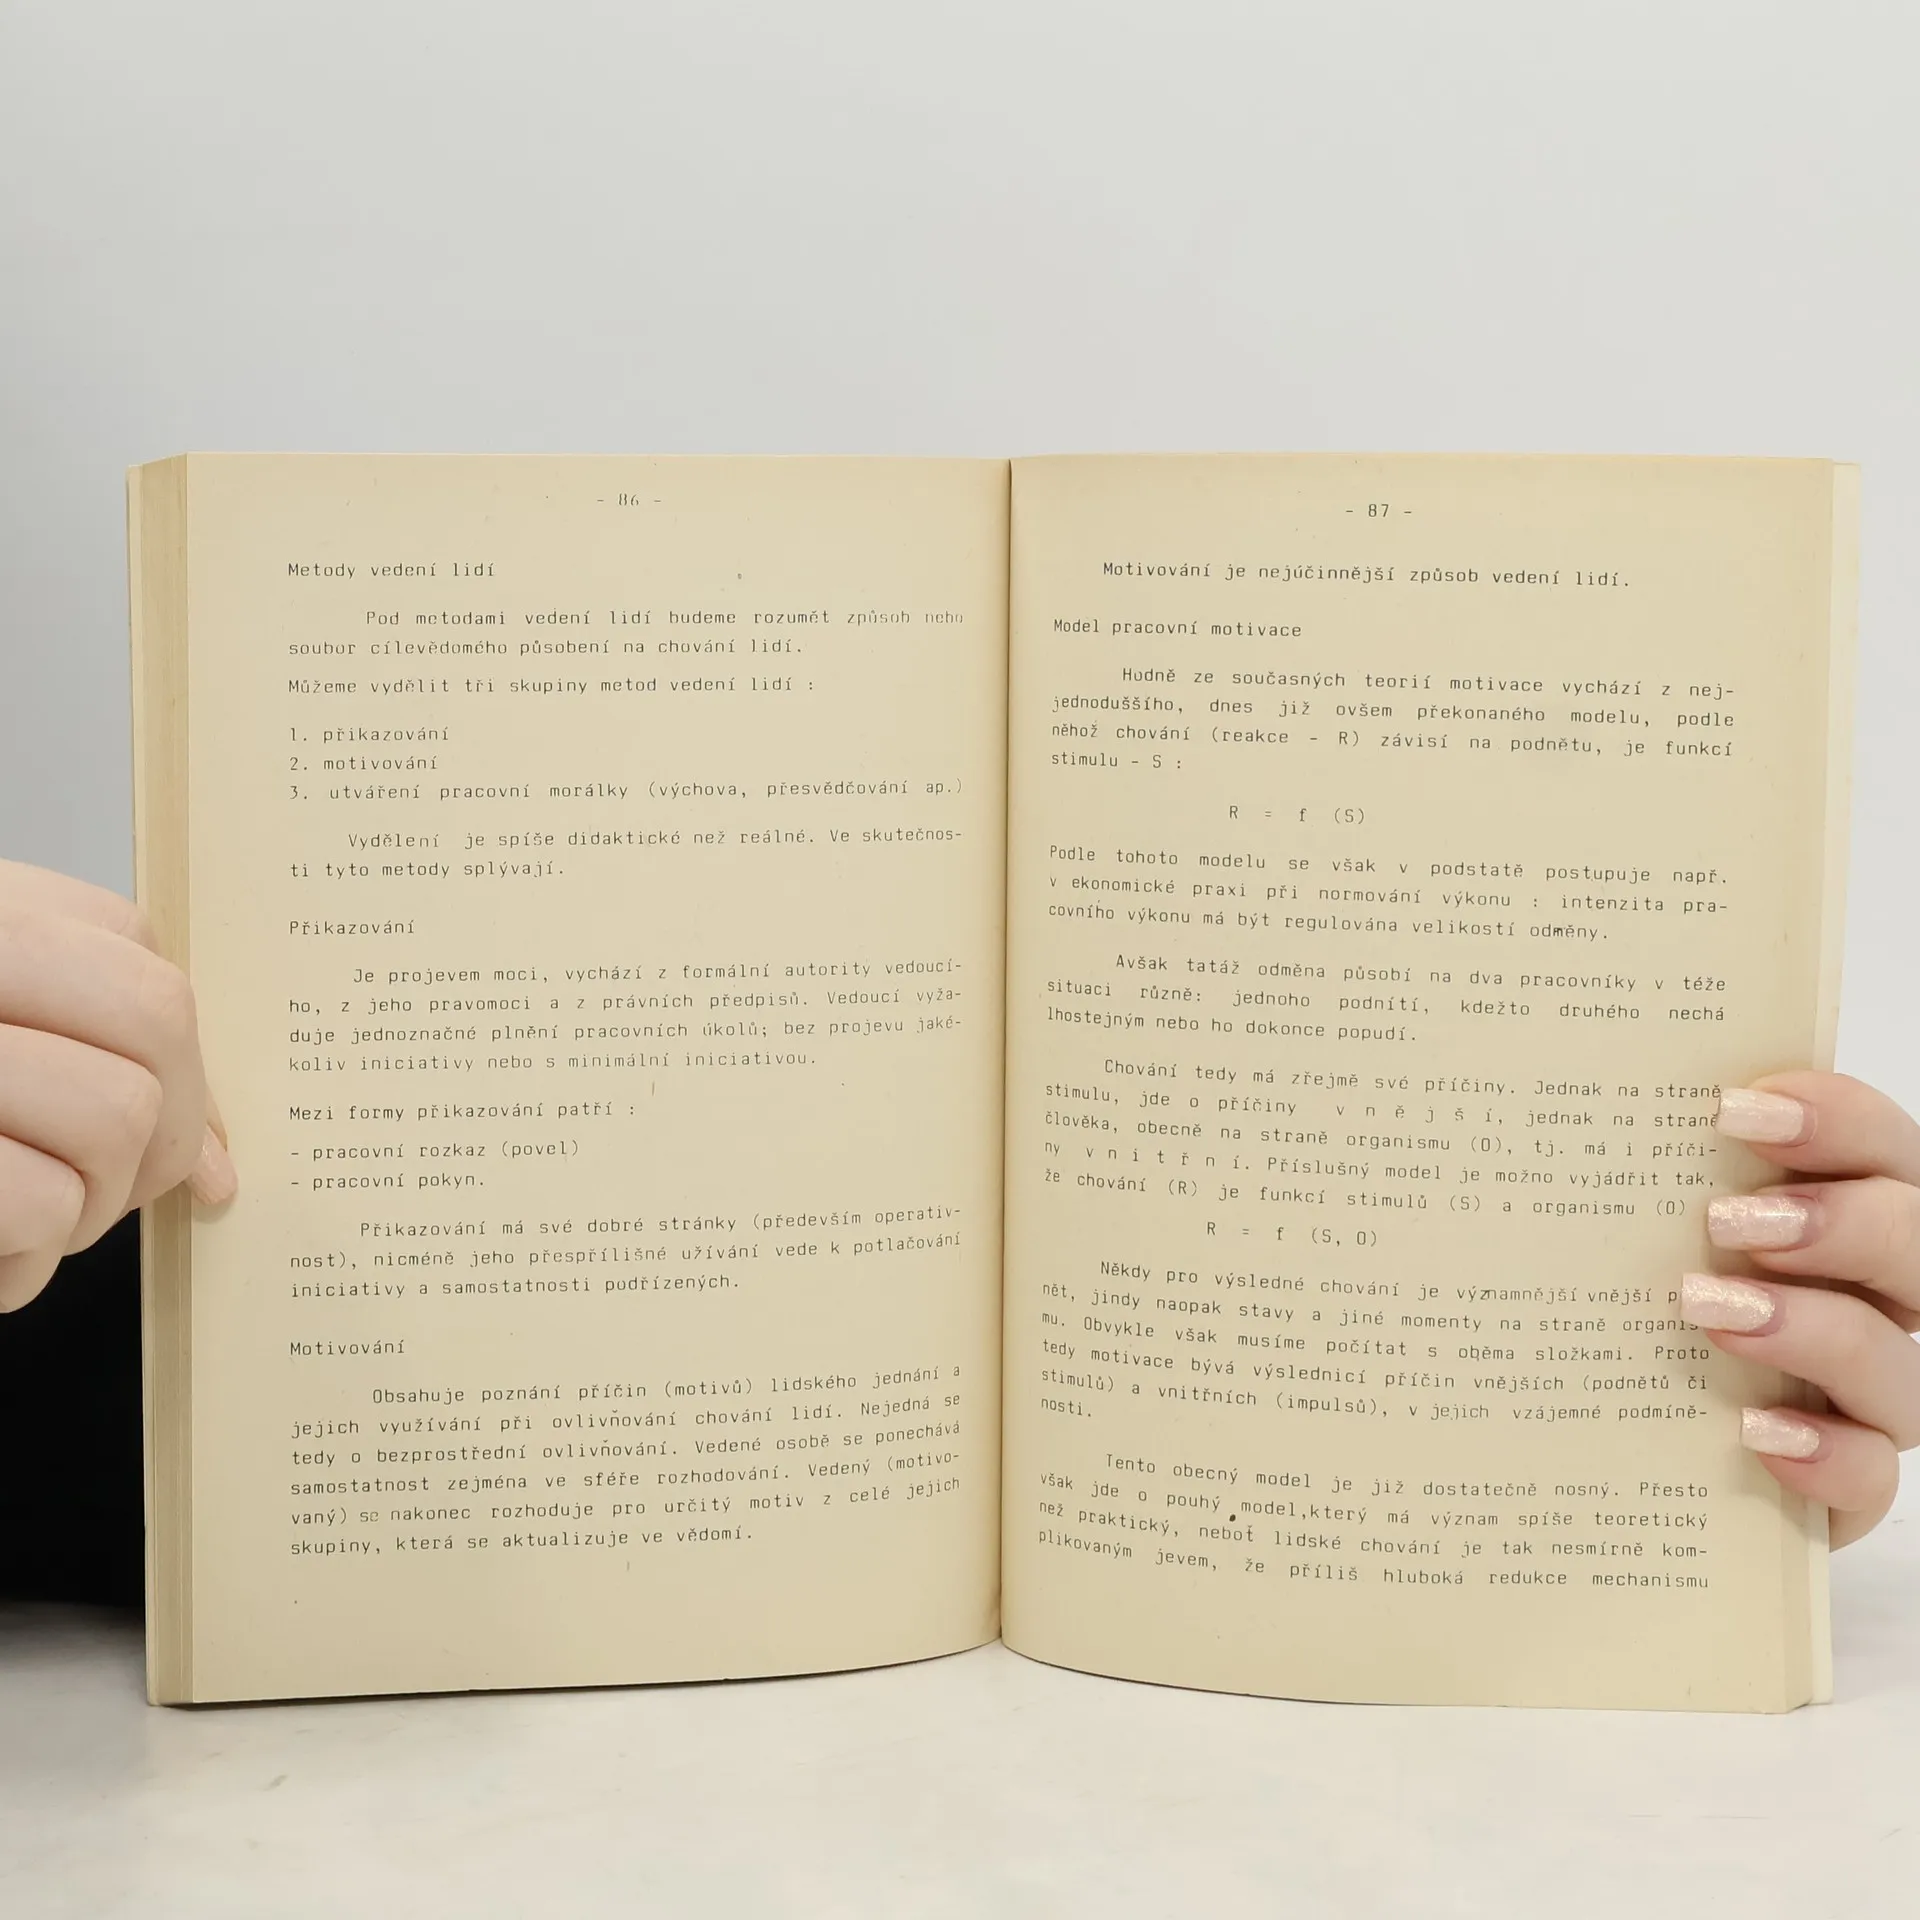 - 86 -
Metody vedení lidí
Pod metodami vedení lidí budeme rozumět způsob nebo
soubor cílevědomého působení na chování lidí.
Můžeme vydělit tři skupiny metod vedení lidí :
1. přikazování
2. motivování
3. utváření pracovní morálky (výchova, přesvědčování ap.)
Vydělení je spíše didaktické než reálné. Ve skutečnos-
ti tyto metody splývají.
Přikazování
Je projevem moci, vychází z formální autority vedoucí-
ho, z jeho pravomoci a z právních předpisů. Vedoucí vyža-
duje jednoznačné plnění pracovních úkolů; bez projevu jaké-
koliv iniciativy nebo s minimální iniciativou.
Mezi formy přikazování patří :
- pracovní rozkaz (povel)
- pracovní pokyn.
Přikazování má své dobré stránky (především operativ-
nost), nicméně jeho přespřílišné užívání vede k potlačování
iniciativy a samostatnosti podřízených.
Motivování
Obsahuje poznání příčin (motivů) lidského jednání a
jejich využívání při ovlivňování chování lidí. Nejedná se
tedy o bezprostřední ovlivňování. Vedené osobě se ponechává
samostatnost zejména ve sféře rozhodování. Vedený (motivo-
vaný) se nakonec rozhoduje pro určitý motiv z celé jejich
skupiny, která se aktualizuje ve vědomí.
- 87 -
Motivování je nejúčinnější způsob vedení lidí.
Model pracovní motivace
Hodně ze současných teorií motivace vychází z nej-
jednoduššího, dnes již ovšem překonaného modelu, podle
něhož chování (reakce - R) závisí na podnětu, je funkcí
stimulu - S :
R = f (S)
Podle tohoto modelu se však v podstatě postupuje např.
v ekonomické praxi při normování výkonu : intenzita pra-
covního výkonu má být regulována velikostí odměny.
Avšak tatáž odměna působí na dva pracovníky v téže
situaci různě: jednoho podnítí, kdežto druhého nechá
lhostejným nebo ho dokonce popudí.
Chování tedy má zřejmě své příčiny. Jednak na straně
stimulu, jde o příčiny v n ě j š í, jednak na straně
člověka, obecně na straně organismu (O), tj. má i příči-
ny v n i t ř n í. Příslušný model je možno vyjádřit tak,
že chování (R) je funkcí stimulů (S) a organismu (O)
R = f (S, O)
Někdy pro výsledné chování je významnější vnější
nět, jindy naopak stavy a jiné momenty na straně organis-
mu. Obvykle však musíme počítat s oběma složkami. Proto
tedy motivace bývá výslednicí příčin vnějších (podnětů či
stimulů) a vnitřních (impulsů), v jejich vzájemné podmíně-
nosti.
Tento obecný model je již dostatečně nosný. Přesto
však jde o pouhý model,který má význam spíše teoretický
než praktický, neboť lidské chování je tak nesmírně kom-
plikovaným jevem, že příliš hluboká redukce mechanismu